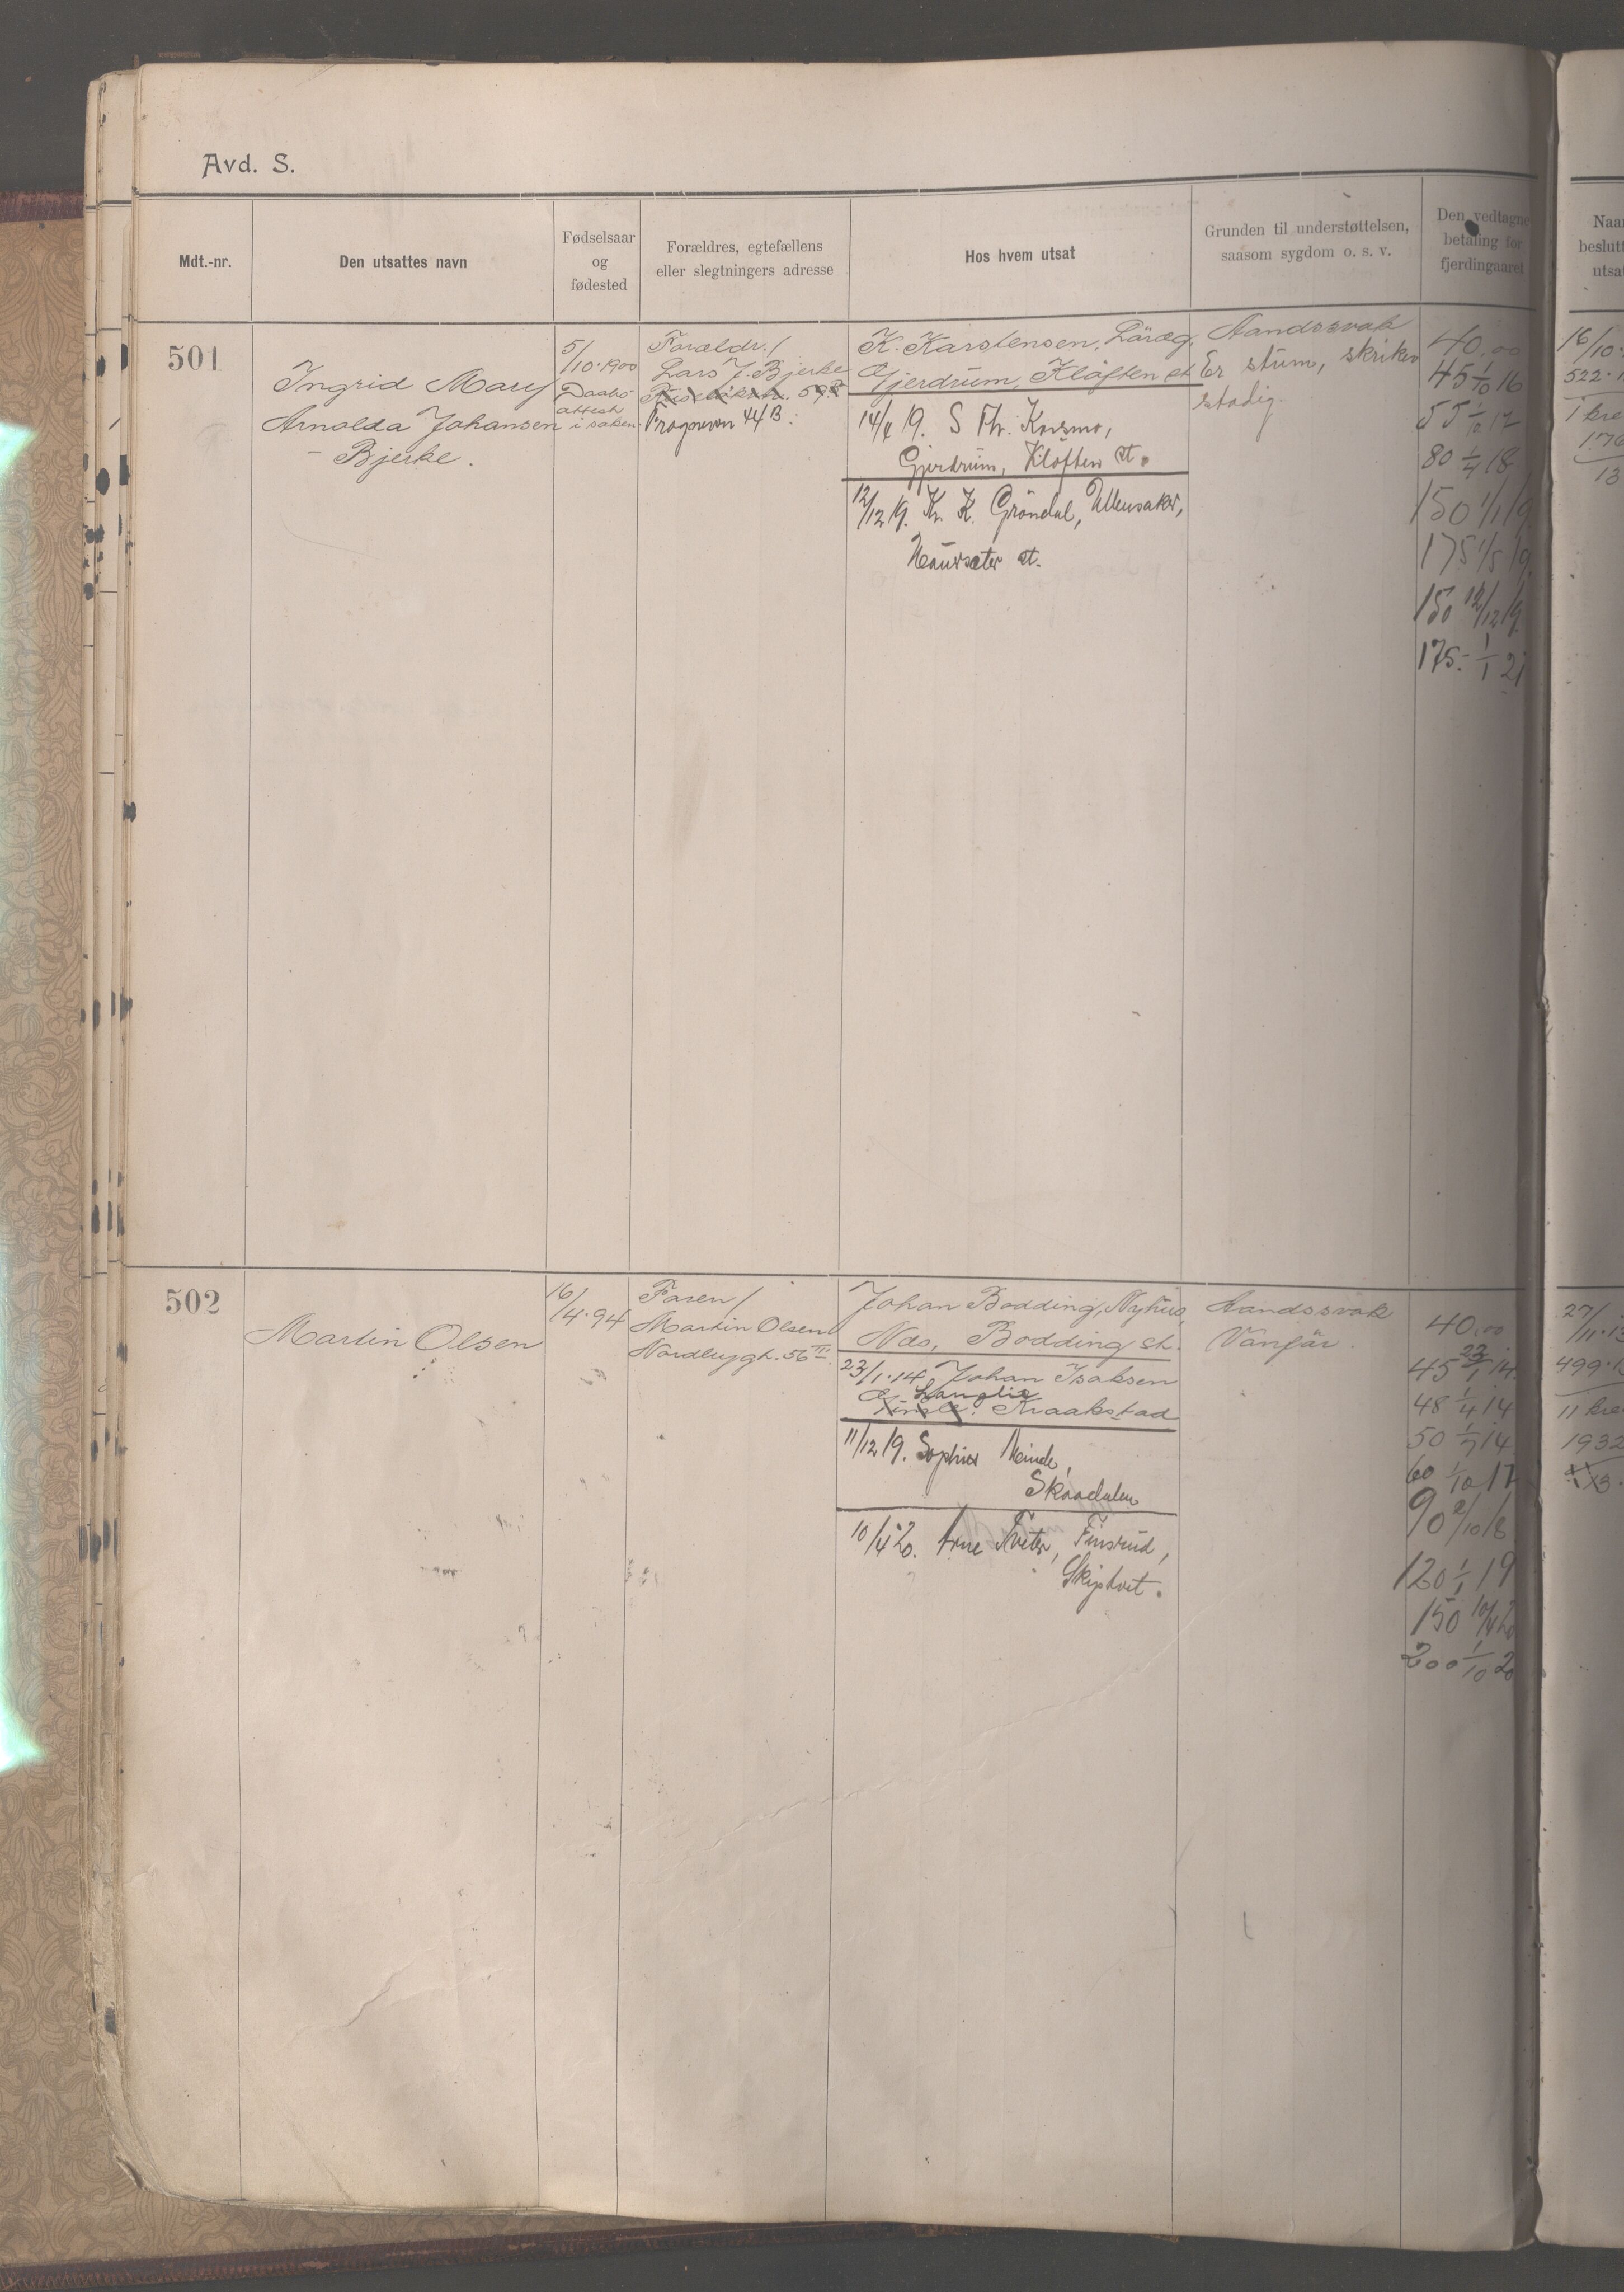 Avd. S.
Mdt.-nr.
Den utsattes navn
Fødselsaar
og
fødested
Forældres, egtefællens
eller slegtningers adresse
Hos hvem utsat
Grunden til understøttelsen,
saasom sygdom o. s. v.
Den vedtagne
betaling for
fjerdingaaret
501
Ingrid Mary
Arnolda Johansen
- Bjerke.
5/10.1900
Daabs
attest
i saken.
Foreldr. /
Lars J. Bjerke
Frognervn 44 B.
K. Karstensen,
Gjerdrum, Kløften st
14/4 19. S Th. Korsmo,
Gjerdrum, Kløften st.
12/12 19. Kr. K. Grøndal, Ullensaker,
Hauersæter st.
Aandssvak
Er stum, skriker
stadig.
40.00
45 1/10 16
55 1/10 17
80 1/4 18
150 1/1 19
175 1/5 19
150 12/12 19
175.- 1/1 21
502
Martin Olsen
16/4.94
Faren /
Martin Olsen
Nordbygt. 56 III
Johan Bodding, Nyhus,
Næs, Bodding st.
23/1.14 Johan Isaksen
Langlie
Kraakstad
11/12 19. Sophie
Skaadalen
10/4 20. Arne Tveter, Finsrud,
Skiptvet.
Aandssvak
Vanfør.
40.00
45 23/1 14.
48 1/4 14
50 1/7 14
60 1/10 17
90 2/10 18
120 1/1 19
150 10/4 20
200 1/10 20